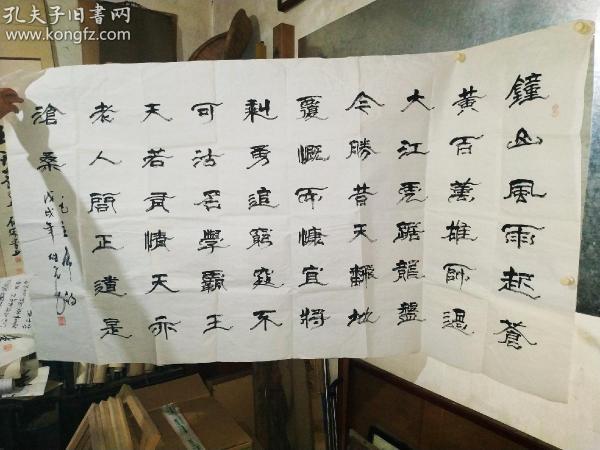 孔夫子旧书网
www.kongfz.com
鐘山風雨起蒼
黃百萬雄師過
大江虎踞龍盤
今勝昔天翻地
覆慨而慷宜將
剩勇追窮寇不
可沽名學霸王
天若有情天亦
老人間正道是
滄桑
毛主席詞
戊戌年